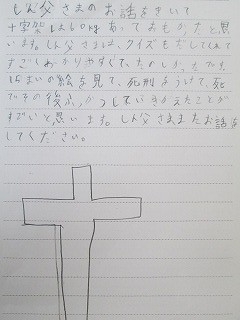 しん父さまのお話をきいて
十字架は60kgあっておもかったと思
います。しん父さまは、クイズもだしてくれて
すごくわかりやすくて、たのしかったです。
15まいの絵を見て、死刑をうけて、死
でその後ふっかつしていきかえたことが
すごいと思います。しん父さままたお話を
してください。